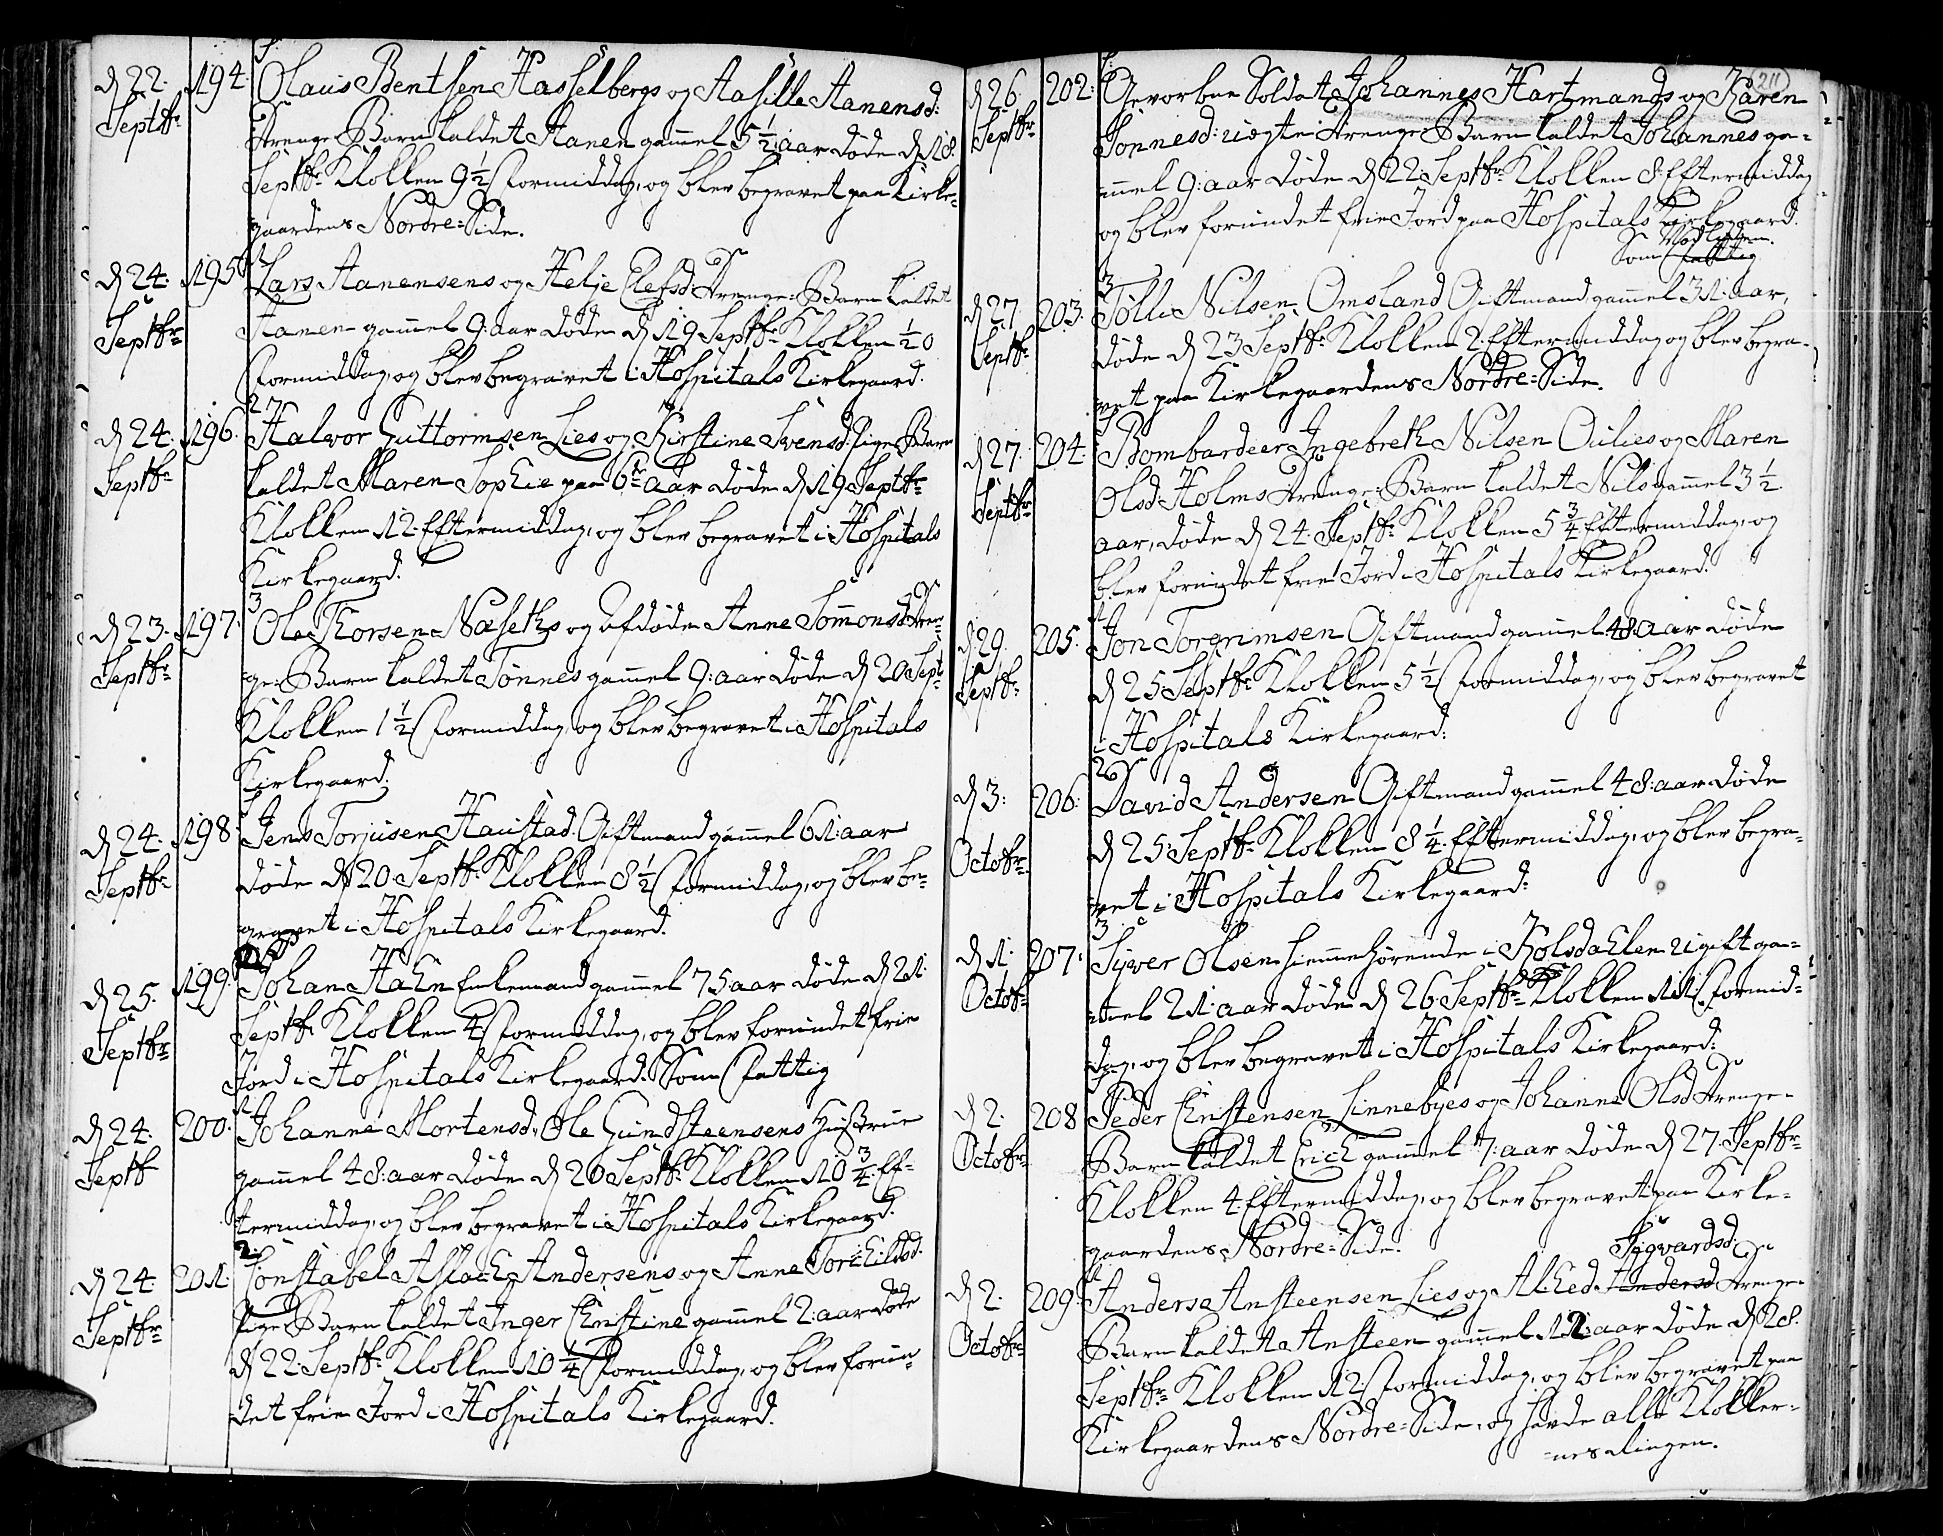 d 22. 194. Olaus Bentsen Hasselbergs og Aasille Aanensd:
Septbr. Drenge Barn kaldet Aanen gammel 5 1/2 aar døde d 18.
Septbr. Klokken 9 1/2 Formiddag, og blev begravet paa Kirke-
gaardens Nordre-Side.
d 24. 195. Lars Aanensens og Helje Olefsd: Drenge-Barn kaldet
Septbr. Aanen gammel 9: aar døde d 19 Septbr. Klokken 1/2 0
Formiddag, og blev begravet i Hospitals Kirkegaard.
27
d 24. 196. Halvor Guttormsen Lies og Kirstine Svensd: Pige Barn
Septbr. kaldet Maren Sophie paa 6te aar døde d 19 Septbr.
Klokken 12. Eftermiddag, og blev begravet i Hospitals
Kirkegaard.
3
d 23. 197. Ole Thorsen Næseths og Afdøde Anne Tommonsd: Dren-
Septbr. ge-Barn kaldet Tønnes gammel 9: aar døde d 20 Sept.
Klokken 1 1/2 Formiddag, og blev begravet i Hospitals
Kirkegaard.
d 24. 198. Jens Torjusen Haustad. Giftmand gammel 61: aar
Septbr. døde d 20 Septbr. Klokken 8 1/2 Formiddag, og blev be-
gravet i Hospitals Kirkegaard.
d 25. 199. Johan Hahn Enkemand gammel 75 aar døde d 21.
Septbr. Septbr. Klokken 4. Formiddag, og blev forundet frie
Jord i Hospitals Kirkegaard. Som Fattig
d 24. 200. Johanne Mortensd. Ole Gundsteensens Hustrue
Septbr gammel 48: aar døde d 20 Septbr. Klokken 10 3/4 Ef-
termiddag, og blev begravet i Hospitals Kirkegaard.
2.
d 24. 201. Constabel Aslach Andersens og Anne Torchildsd.
Septbr. Pige Barn kaldet Inger Christine gammel 2: aar døde
d 22 Septbr. Klokken 10 1/4 Formiddag, og blev forun-
det frie Jord i Hospitals Kirkegaard.
211
d 26. 202. Gevorbne Soldat Johannes Hartmands og Karen
Septbr. Tønnesd: uægte Drenge-Barn kaldet Johannes ga-
mmel 9: aar døde d 22 Septbr. Klokken 8. Eftermiddag
og blev forundet frie Jord paa Hospitals Kirkegaard.
Som Fattig
3
d 27. 203. Tolle Nilsen Omsland Giftmand gammel 31: aar,
Septbr. døde d 23 Septbr. Klokken 2. Eftermiddag og blev begra-
vet paa Kirkegaardens Nordre-Side.
d 27. 204. Bombardeer Ingebreth Nilsen Oulies og Maren
Septbr. Olsd: Holms Drenge-Barn kaldet Nils gammel 3 1/2
aar, døde d 24 Septbr. Klokken 5 3/4 Eftermiddag, og
blev forundet frie Jord i Hospitals Kirkegaard.
d 29. 205. Jon Torgrimsen Giftmand gammel 48 aar døde
Septbr. d 25 Septbr. Klokken 5 1/2 Formiddag, og blev begravet
i Hospitals Kirkegaard.
26
d 3. 206. David Andersen Giftmand gammel 48: aar døde
Octobr. d 25 Septbr. Klokken 8 1/4. Eftermiddag, og blev begra-
vet i Hospitals Kirkegaard.
3
d 1. 207. Syver Olsen hiemmehørende i Kolsdahlen ugift ga-
Octobr. mmel 21: aar døde d 26 Septbr. Klokken 11. Formid-
dag, og blev begravet i Hospitals Kirkegaard.
d 2. 208 Peder Christensen Linnebyes og Johanne Olsd: Drenge-
Octobr. Barn kaldet Erich gammel 7: aar døde d 27. Septbr.
Klokken 4. Eftermiddag, og blev begravet paa Kirke-
gaardens Nordre-Side.
Sygvardsd:
d 2. 209. Anders Ansteensen Lies og Alhed Andersd Drenge-
Octobr. Barn kaldet Ansteen gammel 12: aar døde d 28.
Septbr. Klokken 12. Formiddag, og blev begravet paa
Kirkegaardens Nordre-Side, og havde alle Klokker-
nes Ringen.